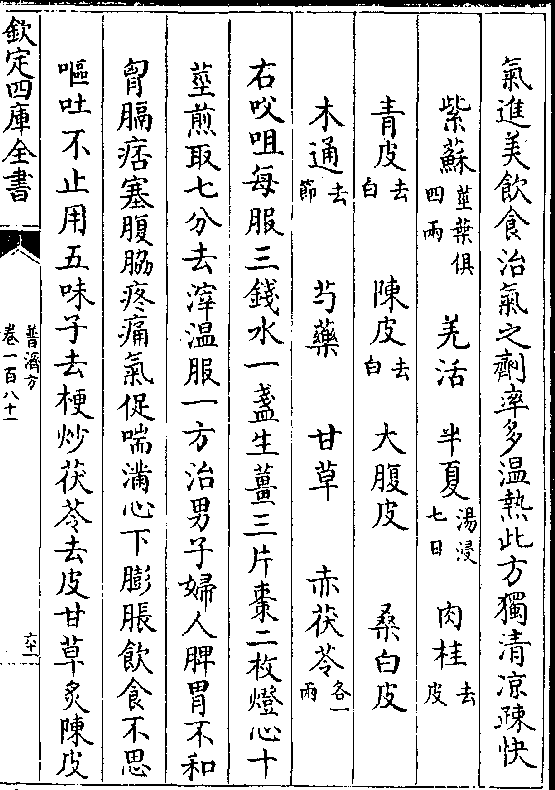 氣進美飲食治氣之劑率多温熱此方獨清凉疎快
紫蘇莖葉俱四兩 羌活 半夏湯浸七日 肉桂去皮
青皮去白 陳皮去白 大腹皮 桑白皮
木通去節 芍藥 甘草 赤茯苓各一兩
右㕮咀每服三錢水一盞生薑三片棗二枚燈心十
莖煎取七分去滓温服一方治男子婦人脾胃不和
胷膈痞塞腹脇疼痛氣促喘滿心下膨脹飲食不思
嘔吐不止用五味子去梗炒茯苓去皮甘草炙陳皮
欽定四庫全書
普濟方
卷一百八十一